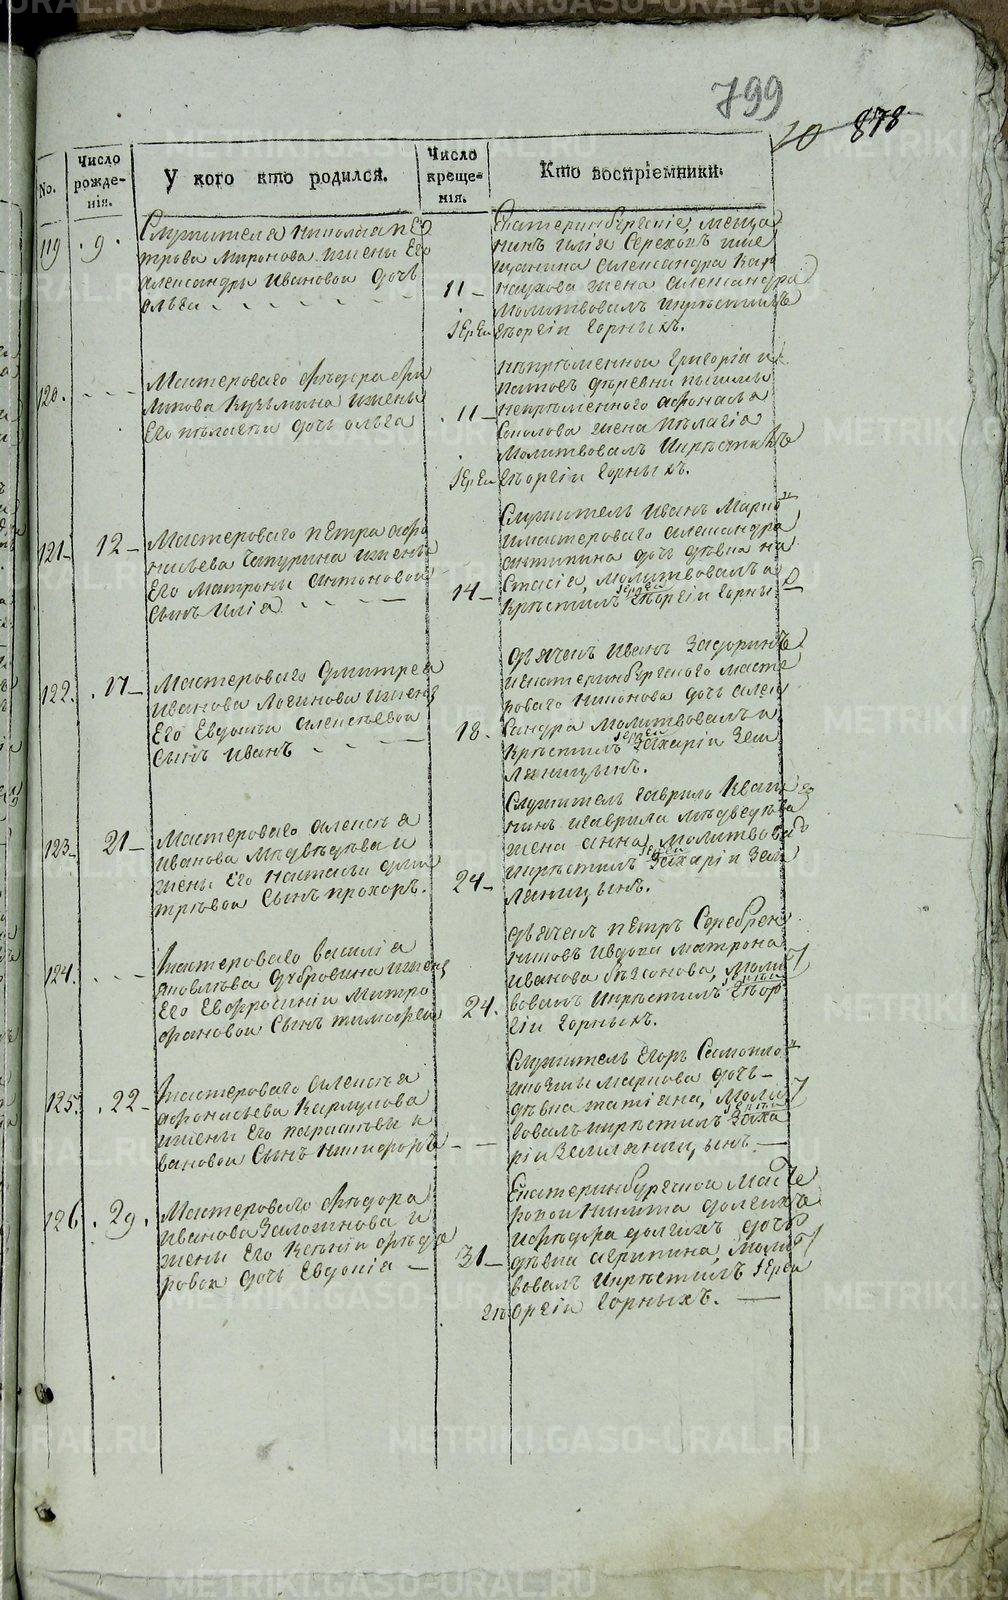 799
20 878
No.
Число рожде-нія.
У кого кто родился.
Число креще-нія.
Кто воспріемники.
119
9
Служителя николая пе
трова миронова ижены Его
александры ивановой дочь
ольга
11
Екатеринбургскіе, меща
нинъ илія Сереховъ име
щанина александра Кар
наухова жена александра
молитвовалъ икрѣстилъ
Іерей Гѣоргіи Горныхъ.
120.
Мастероваго Фѣдора фи
липова кузмина ижены
Его пѣлагѣи дочь ольга
11
нѣпрѣменной Григоріи и
патовъ дѣревни пышмы
нѣпрѣменного афонасья
Соколова жена пѣлагіа
молитвовалъ икрѣстилъ
Іерей Гѣоргіи Горныхъ.
121
12
Мастероваго пѣтра афо
насьева батурина ижены
Его матроны антоновой
Сынъ илія
14
Служитель иванъ
имастероваго александра
антипина дочь дѣвка на
стасіа, молитвовалъ и
крѣстилъ Іерей Гѣоргіи Горны
122.
17
Мастероваго дмитрея
иванова логинова ижены
Его Евдокьи алексѣевой
Сынъ иванъ
18.
дьячекъ иванъ
иекатеринбургскаго масте
роваго никонова дочь алек
сандра молитвовалъ и
крѣстилъ Іерей Захаріи Зем
ляницынъ.
123
21
Мастероваго алексѣя
иванова мѣдвѣдева и
жены Его настасьи дми
трѣвой Сынъ прохоръ.
24
Служитель гаврило Кваш
нинъ игаврила мѣдведѣва
жена анна, молитвовалъ
икрѣстилъ Іерей Захаріи Зем
ляницынъ.
124.
Мастероваго василіа
яковлѣва дубровина ижены
Его Евфросиніи митро
фановой Сынъ тимофей
24.
дьячекъ пѣтръ Серебрен
никовъ ивдова матрона
иванова бѣзсонова, молит
вовалъ икрѣстилъ Іерей Гѣор
гіи Горныхъ.
125.
22
Мастероваго алексѣя
афонасьева карпунова
ижены Его парасковьи и
вановой Сынъ никифоръ
Служитель Егоръ
маркова дочь
дѣвка татіана, молит
вовалъ икрѣстилъ Іерей Заха
ріи Земляницынъ
126
29.
Мастероваго Фѣдора
иванова Заложнова и
жены Его Ксѣніи Фѣдо
ровой дочь Евдокіа
31
Екатеринбургской масте
ровой никита долгихъ
ифѣдора долгихъ дочь
дѣвка агрипина, молит
вовалъ икрѣстилъ Іерей
Гѣоргіи Горныхъ.
METRIKI.GASO-URAL.RU